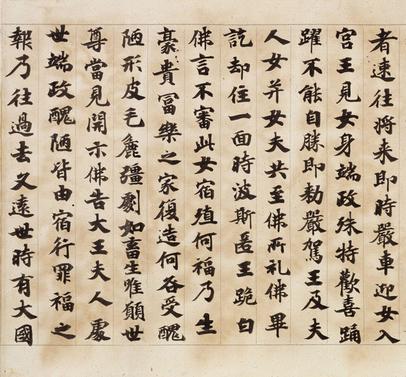 者速往将来即時嚴車迎女入
宮王見女身端政殊特歡喜踊
躍不能自勝即勑嚴駕王及夫
人女并女夫共至佛所礼佛畢
訖却住一面時波斯匿王跪白
佛言不審此女宿殖何福乃生
豪貴冨樂之家復造何咎受醜
陋形皮毛麁彊劇如畜生唯願世
尊當見開示佛告大王夫人處
世端政醜陋皆由宿行罪福之
報乃往過去久遠世時有大國